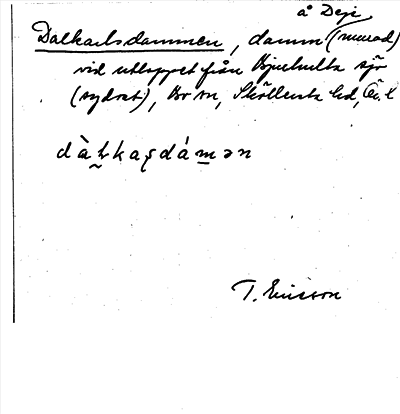 å Deje
Dalkarlsdammen, damm (murad)
vid utloppet från Bjurhulta sjö
(sydost), Bo sn, Sköllersta hd, Ör. l
dàɫkaʂdámən
T. Ericsson